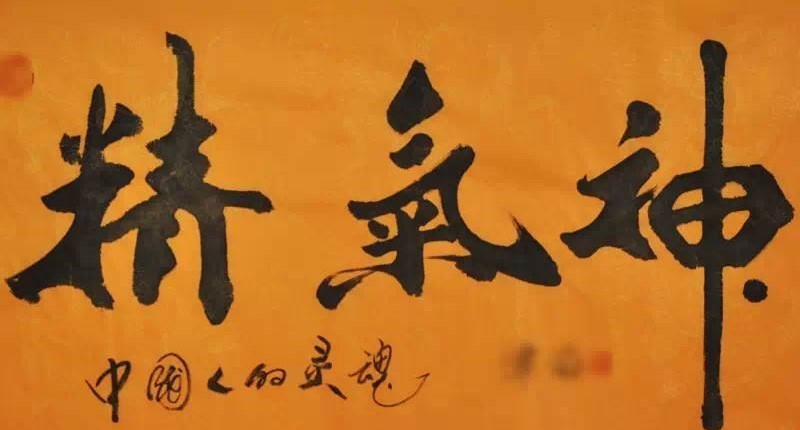 精氣神
中國人的灵魂